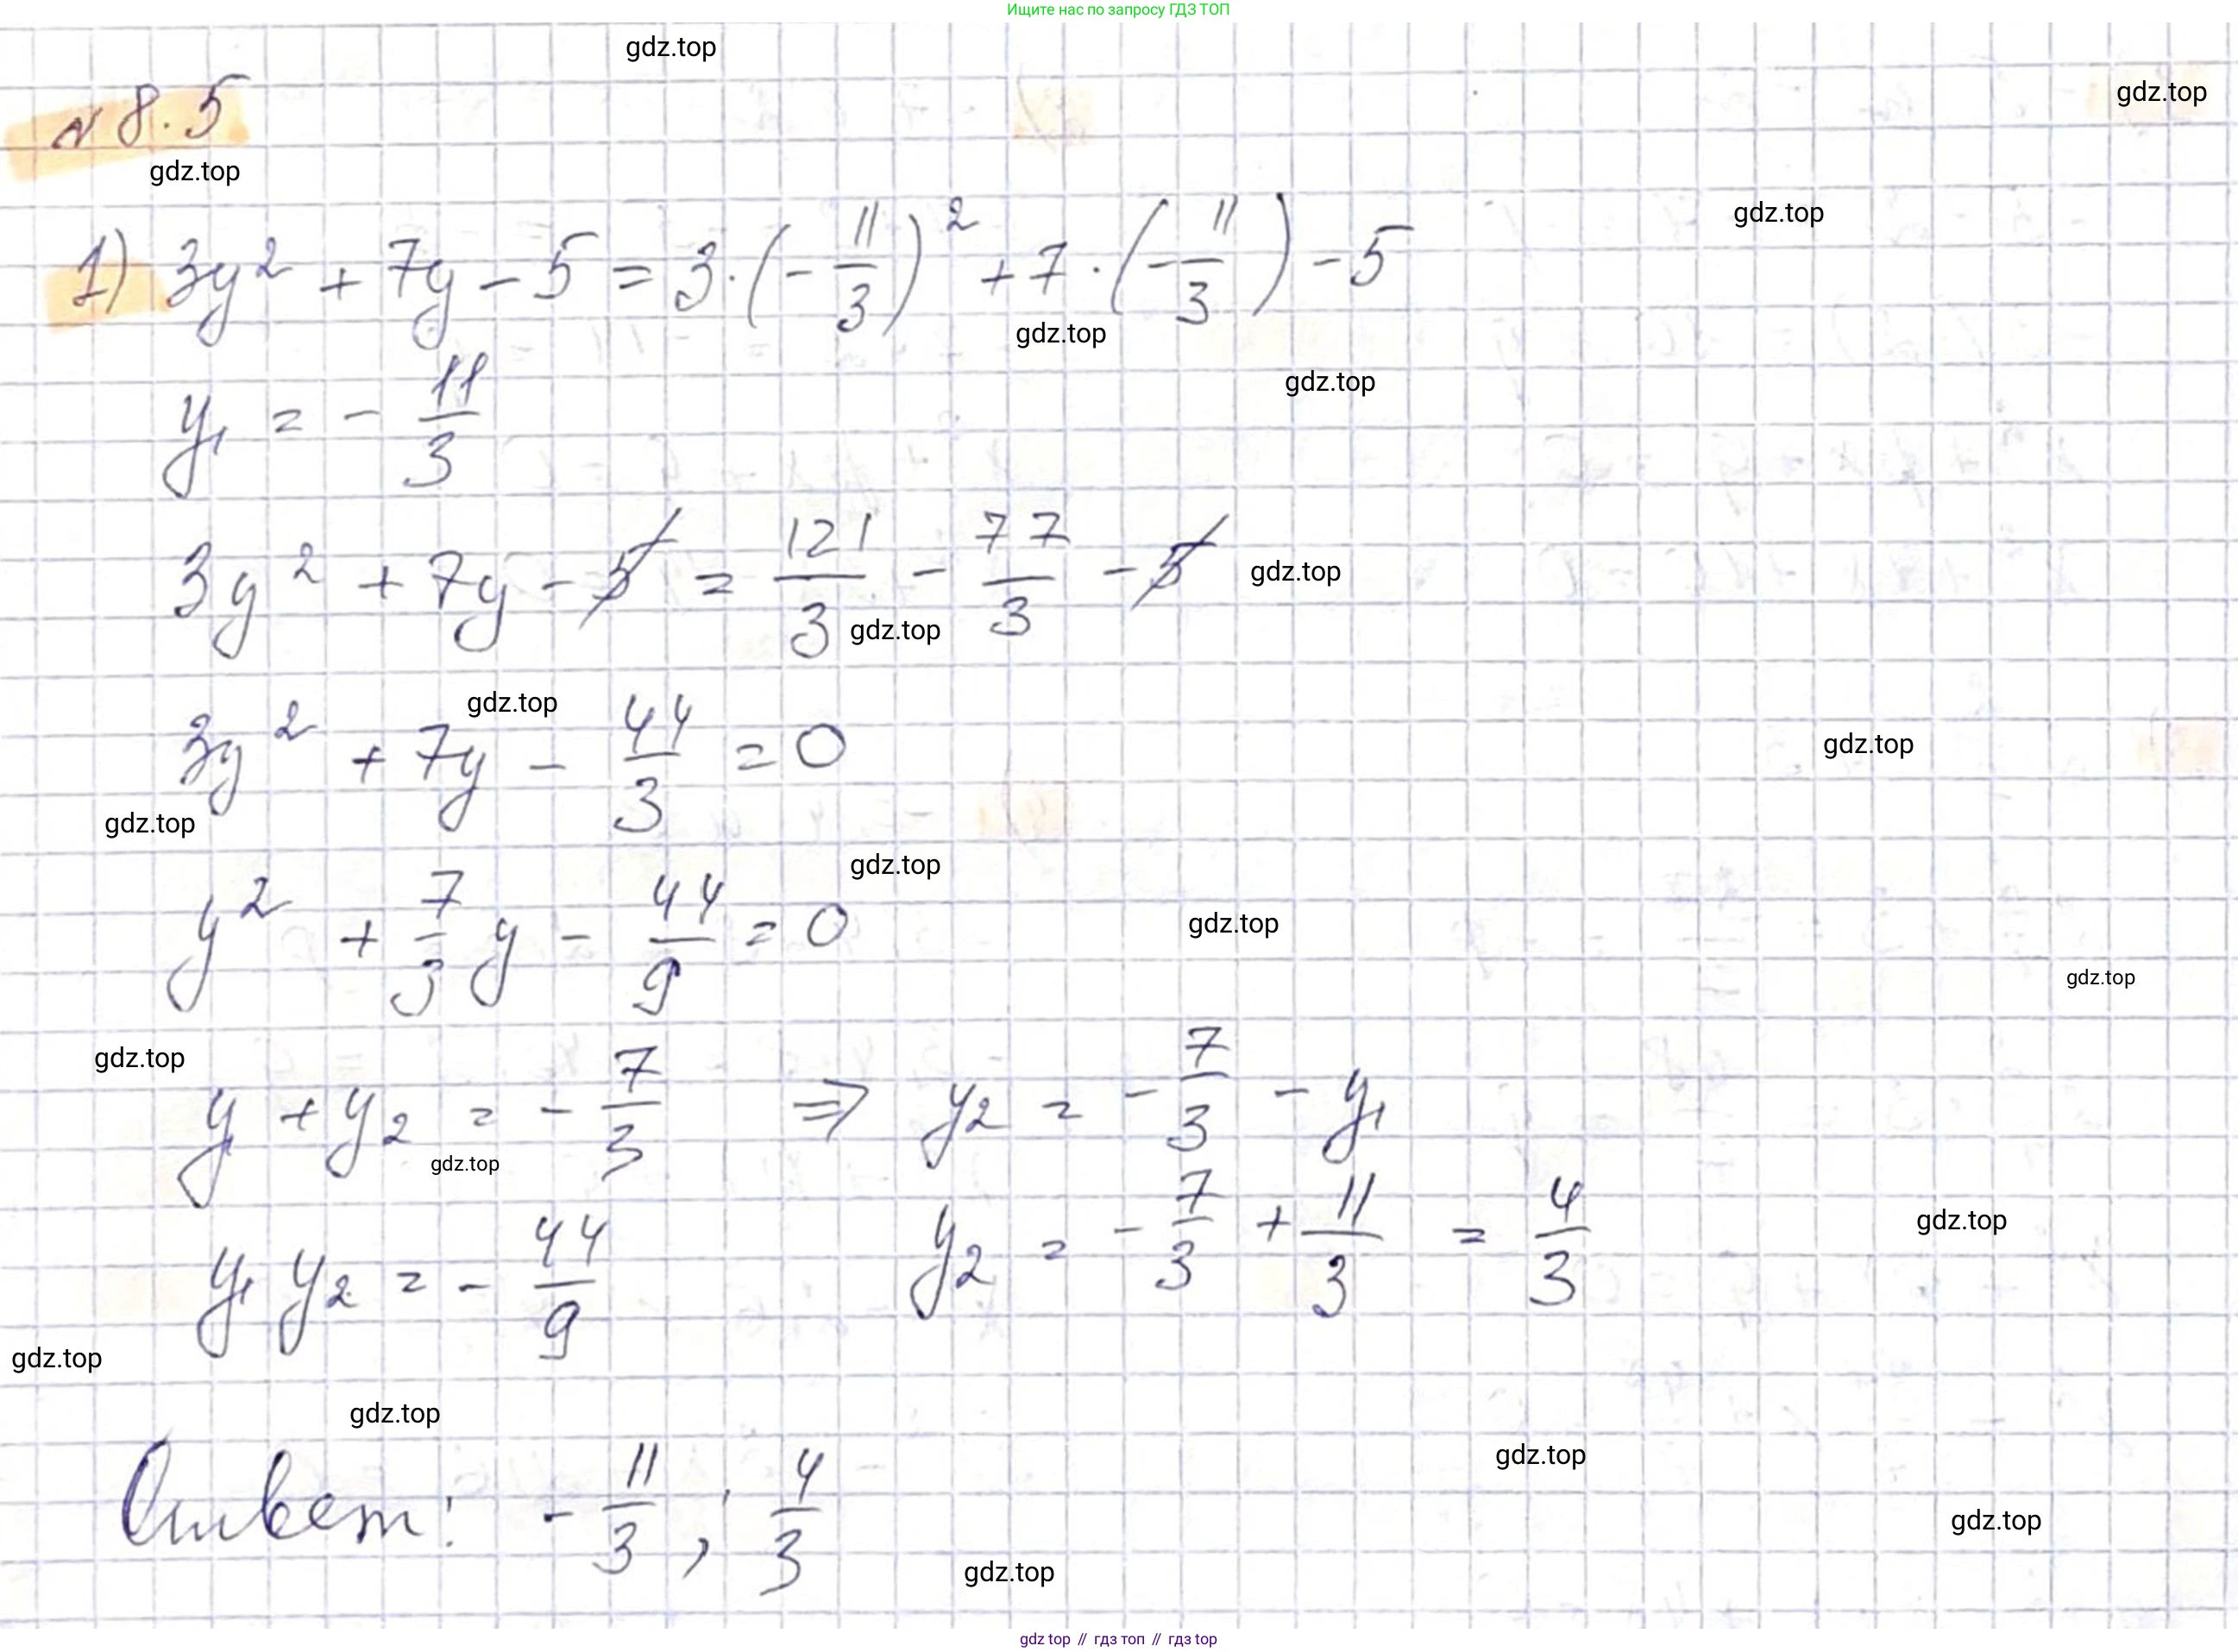 Ищите нас по запросу ГДЗ ТОП
gdz.top
gdz.top
№ 8.5
gdz.top
gdz.top
1) 3y² + 7y - 5 = 3·(-11/3)² + 7·(-11/3) - 5
gdz.top
gdz.top
y₁ = - 11/3
3y² + 7y - 5 = 121/3 - 77/3 - 5
gdz.top
gdz.top
gdz.top
3y² + 7y - 44/3 = 0
gdz.top
gdz.top
gdz.top
y² + 7/3 y - 44/9 = 0
gdz.top
gdz.top
gdz.top
y₁ + y₂ = - 7/3 ⇒ y₂ = - 7/3 - y₁
gdz.top
gdz.top
y₁ y₂ = - 44/9 y₂ = - 7/3 + 11/3 = 4/3
gdz.top
gdz.top
gdz.top
Ответ: - 11/3 ; 4/3
gdz.top
gdz.top
gdz top // гдз топ // гдз top